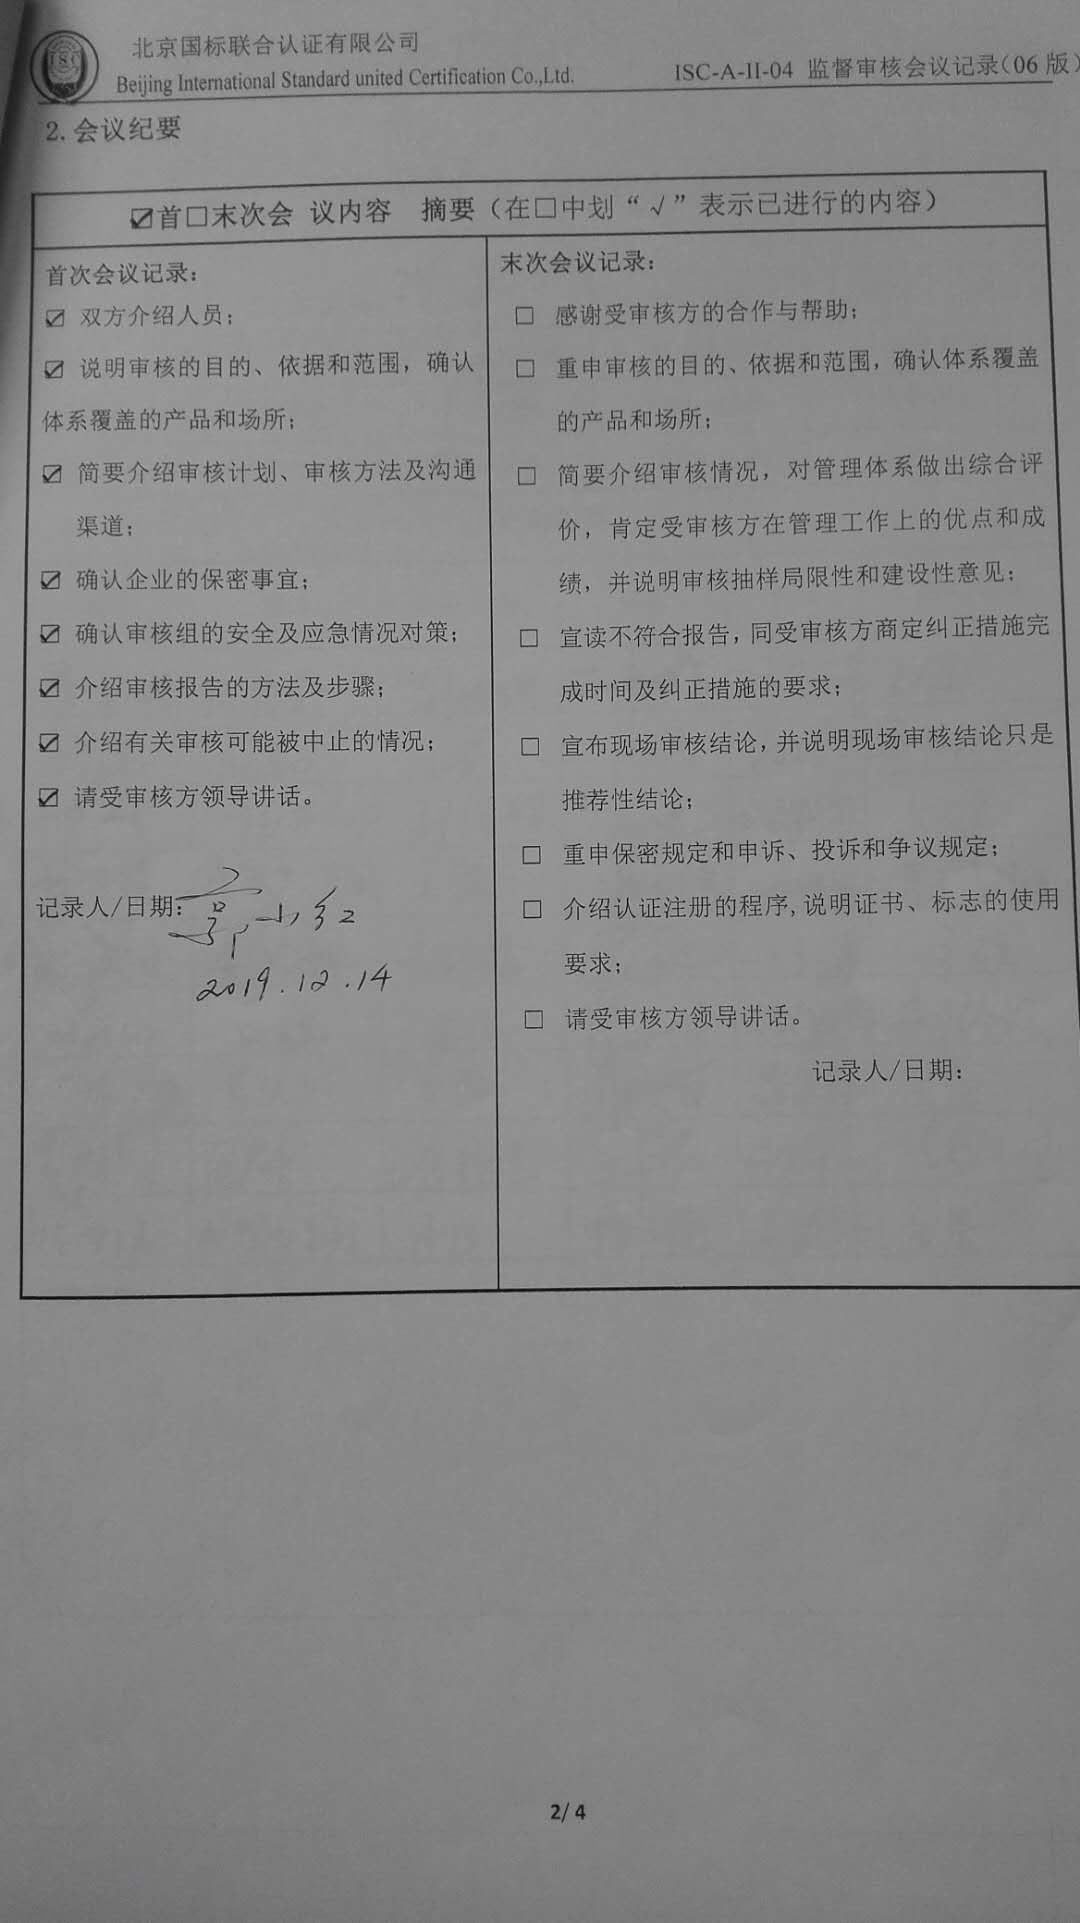 ISC
北京国标联合认证有限公司
Beijing International Standard united Certification Co.,Ltd.
ISC-A-II-04 监督审核会议记录(06 版)
2.会议纪要
☑首□末次会 议内容 摘要（在□中划“√”表示已进行的内容）
首次会议记录：
☑ 双方介绍人员；
☑ 说明审核的目的、依据和范围，确认
体系覆盖的产品和场所；
☑ 简要介绍审核计划、审核方法及沟通
渠道；
☑ 确认企业的保密事宜；
☑ 确认审核组的安全及应急情况对策；
☑ 介绍审核报告的方法及步骤；
☑ 介绍有关审核可能被中止的情况；
☑ 请受审核方领导讲话。
记录人/日期：
2019.12.14
末次会议记录：
□ 感谢受审核方的合作与帮助；
□ 重申审核的目的、依据和范围，确认体系覆盖
的产品和场所；
□ 简要介绍审核情况，对管理体系做出综合评
价，肯定受审核方在管理工作上的优点和成
绩，并说明审核抽样局限性和建设性意见；
□ 宣读不符合报告，同受审核方商定纠正措施完
成时间及纠正措施的要求；
□ 宣布现场审核结论，并说明现场审核结论只是
推荐性结论；
□ 重申保密规定和申诉、投诉和争议规定；
□ 介绍认证注册的程序,说明证书、标志的使用
要求；
□ 请受审核方领导讲话。
记录人/日期：
2/ 4